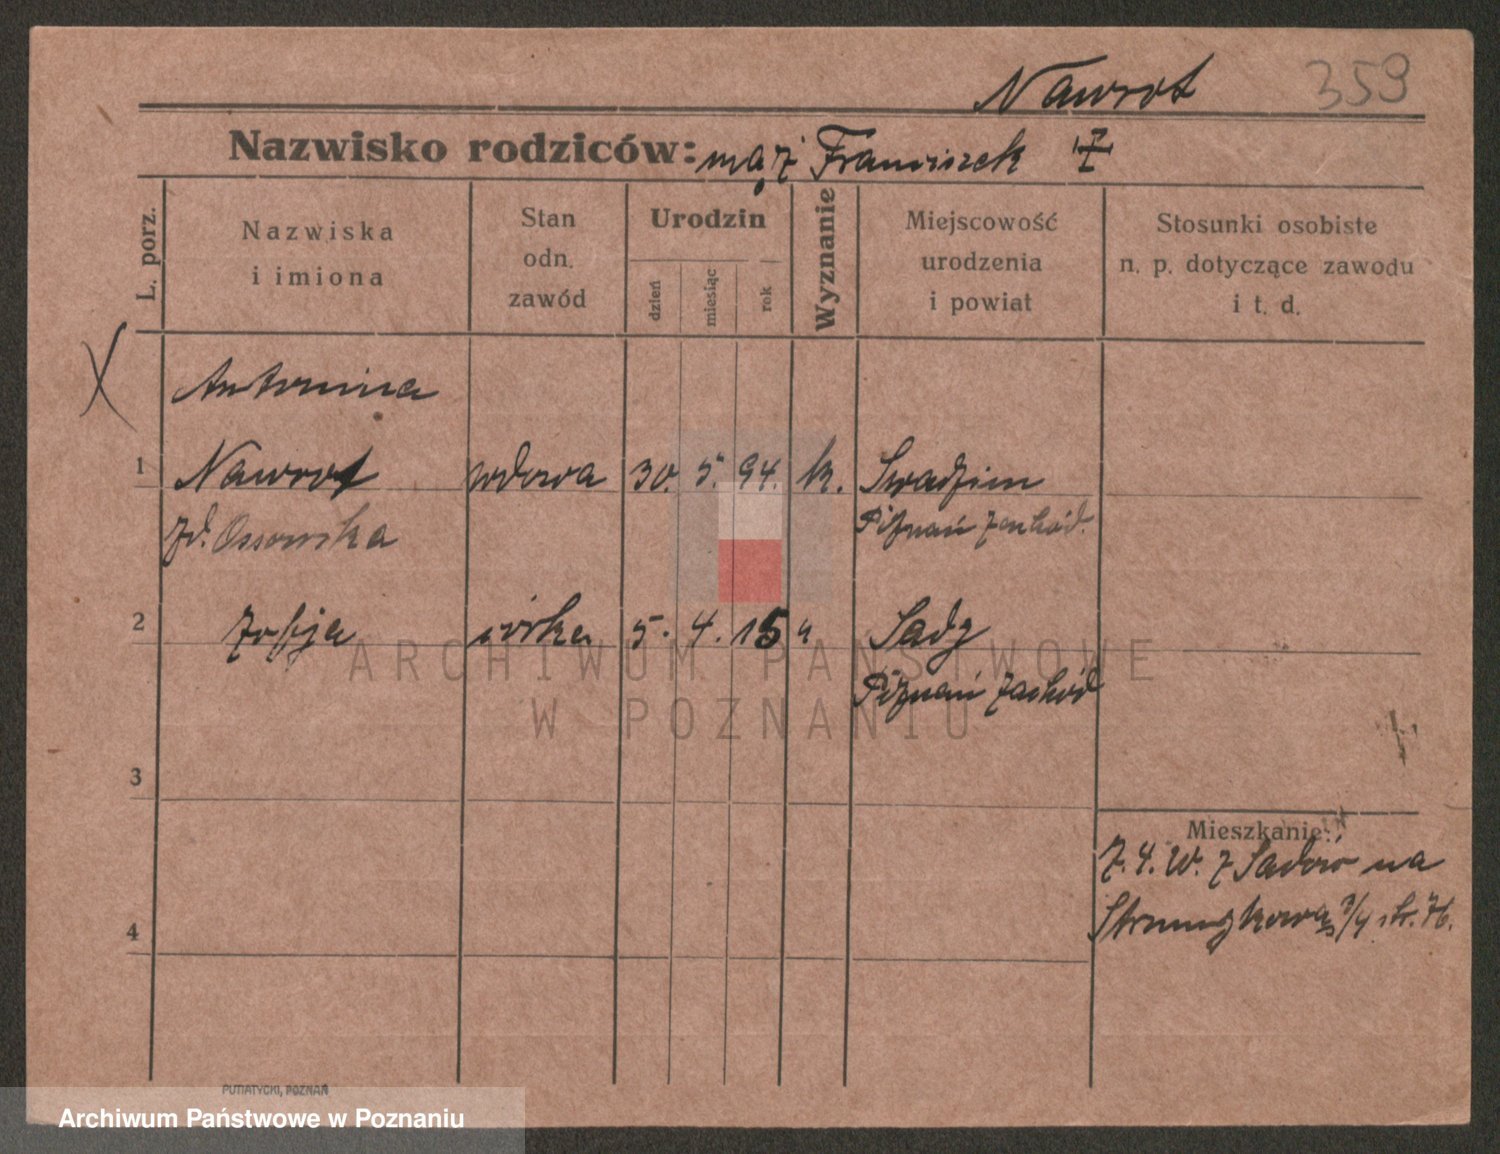 Nawrot 359
Nazwisko rodziców: mąż Franciszek Z
L. porz.
Nazwiska
i imiona
Stan
odn.
zawód
Urodzin
dzień
miesiąc
rok
Wyznanie
Miejscowość
urodzenia
i powiat
Stosunki osobiste
n. p. dotyczące zawodu
i t. d.
X
Antonina
1 Nawrot wdowa 30. 5. 94. k. Swadzim
zd. Ossowska Poznań Zachód.
2 Zofja córka 5. 4. 15 " Sady
Poznań Zachód
3
Mieszkanie:
7. 4. W. z Sadów na
3/4 str. 76.
4
PUTIATYCKI, POZNAŃ
ARCHIWUM PAŃSTWOWE
W POZNANIU
Archiwum Państwowe w Poznaniu